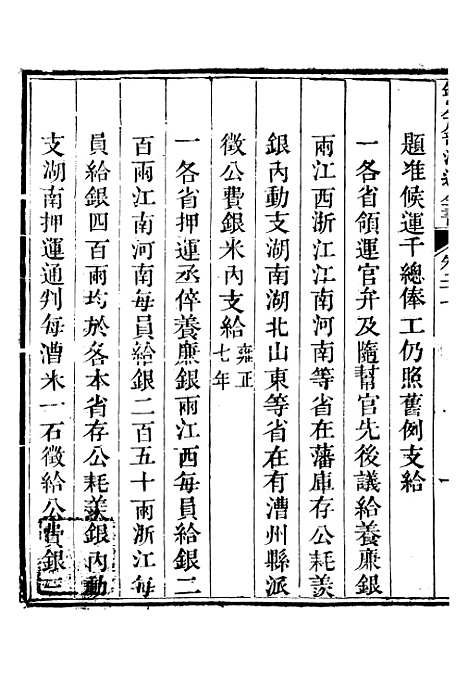 題准候運千總俸工仍照舊例支給
一各省領運官弁及隨幫官先後議給養廉銀
兩江西浙江江南河南等省在藩庫存公耗羨
銀內動支湖南湖北山東等省在有漕州縣派
徵公費銀米內支給雍正七年
一各省押運丞倅養廉銀兩江西每員給銀二
百兩江南河南每員給銀二百五十兩浙江每
員給銀四百兩均於各本省存公耗羨銀內動
支湖南押運通判每漕米一石徵給公費銀